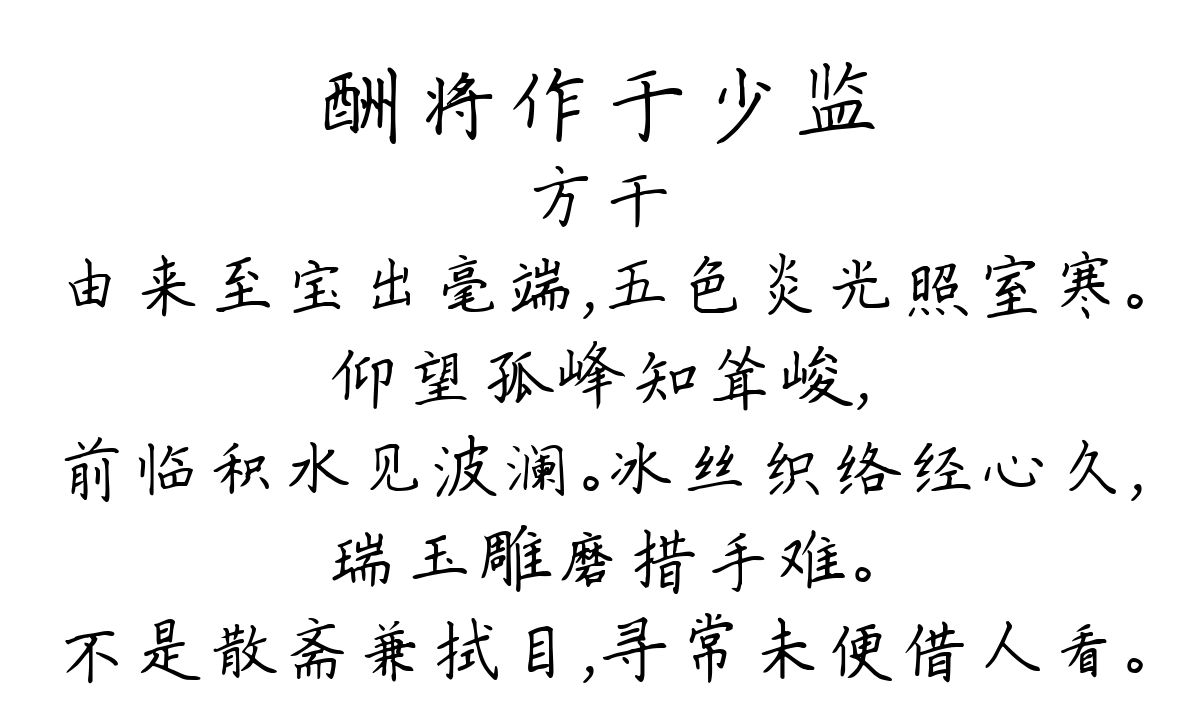 酬将作于少监
方干
由来至宝出毫端,五色炎光照室寒。
仰望孤峰知耸峻,
前临积水见波澜。冰丝织络经心久,
瑞玉雕磨措手难。
不是散斋兼拭目,寻常未便借人看。